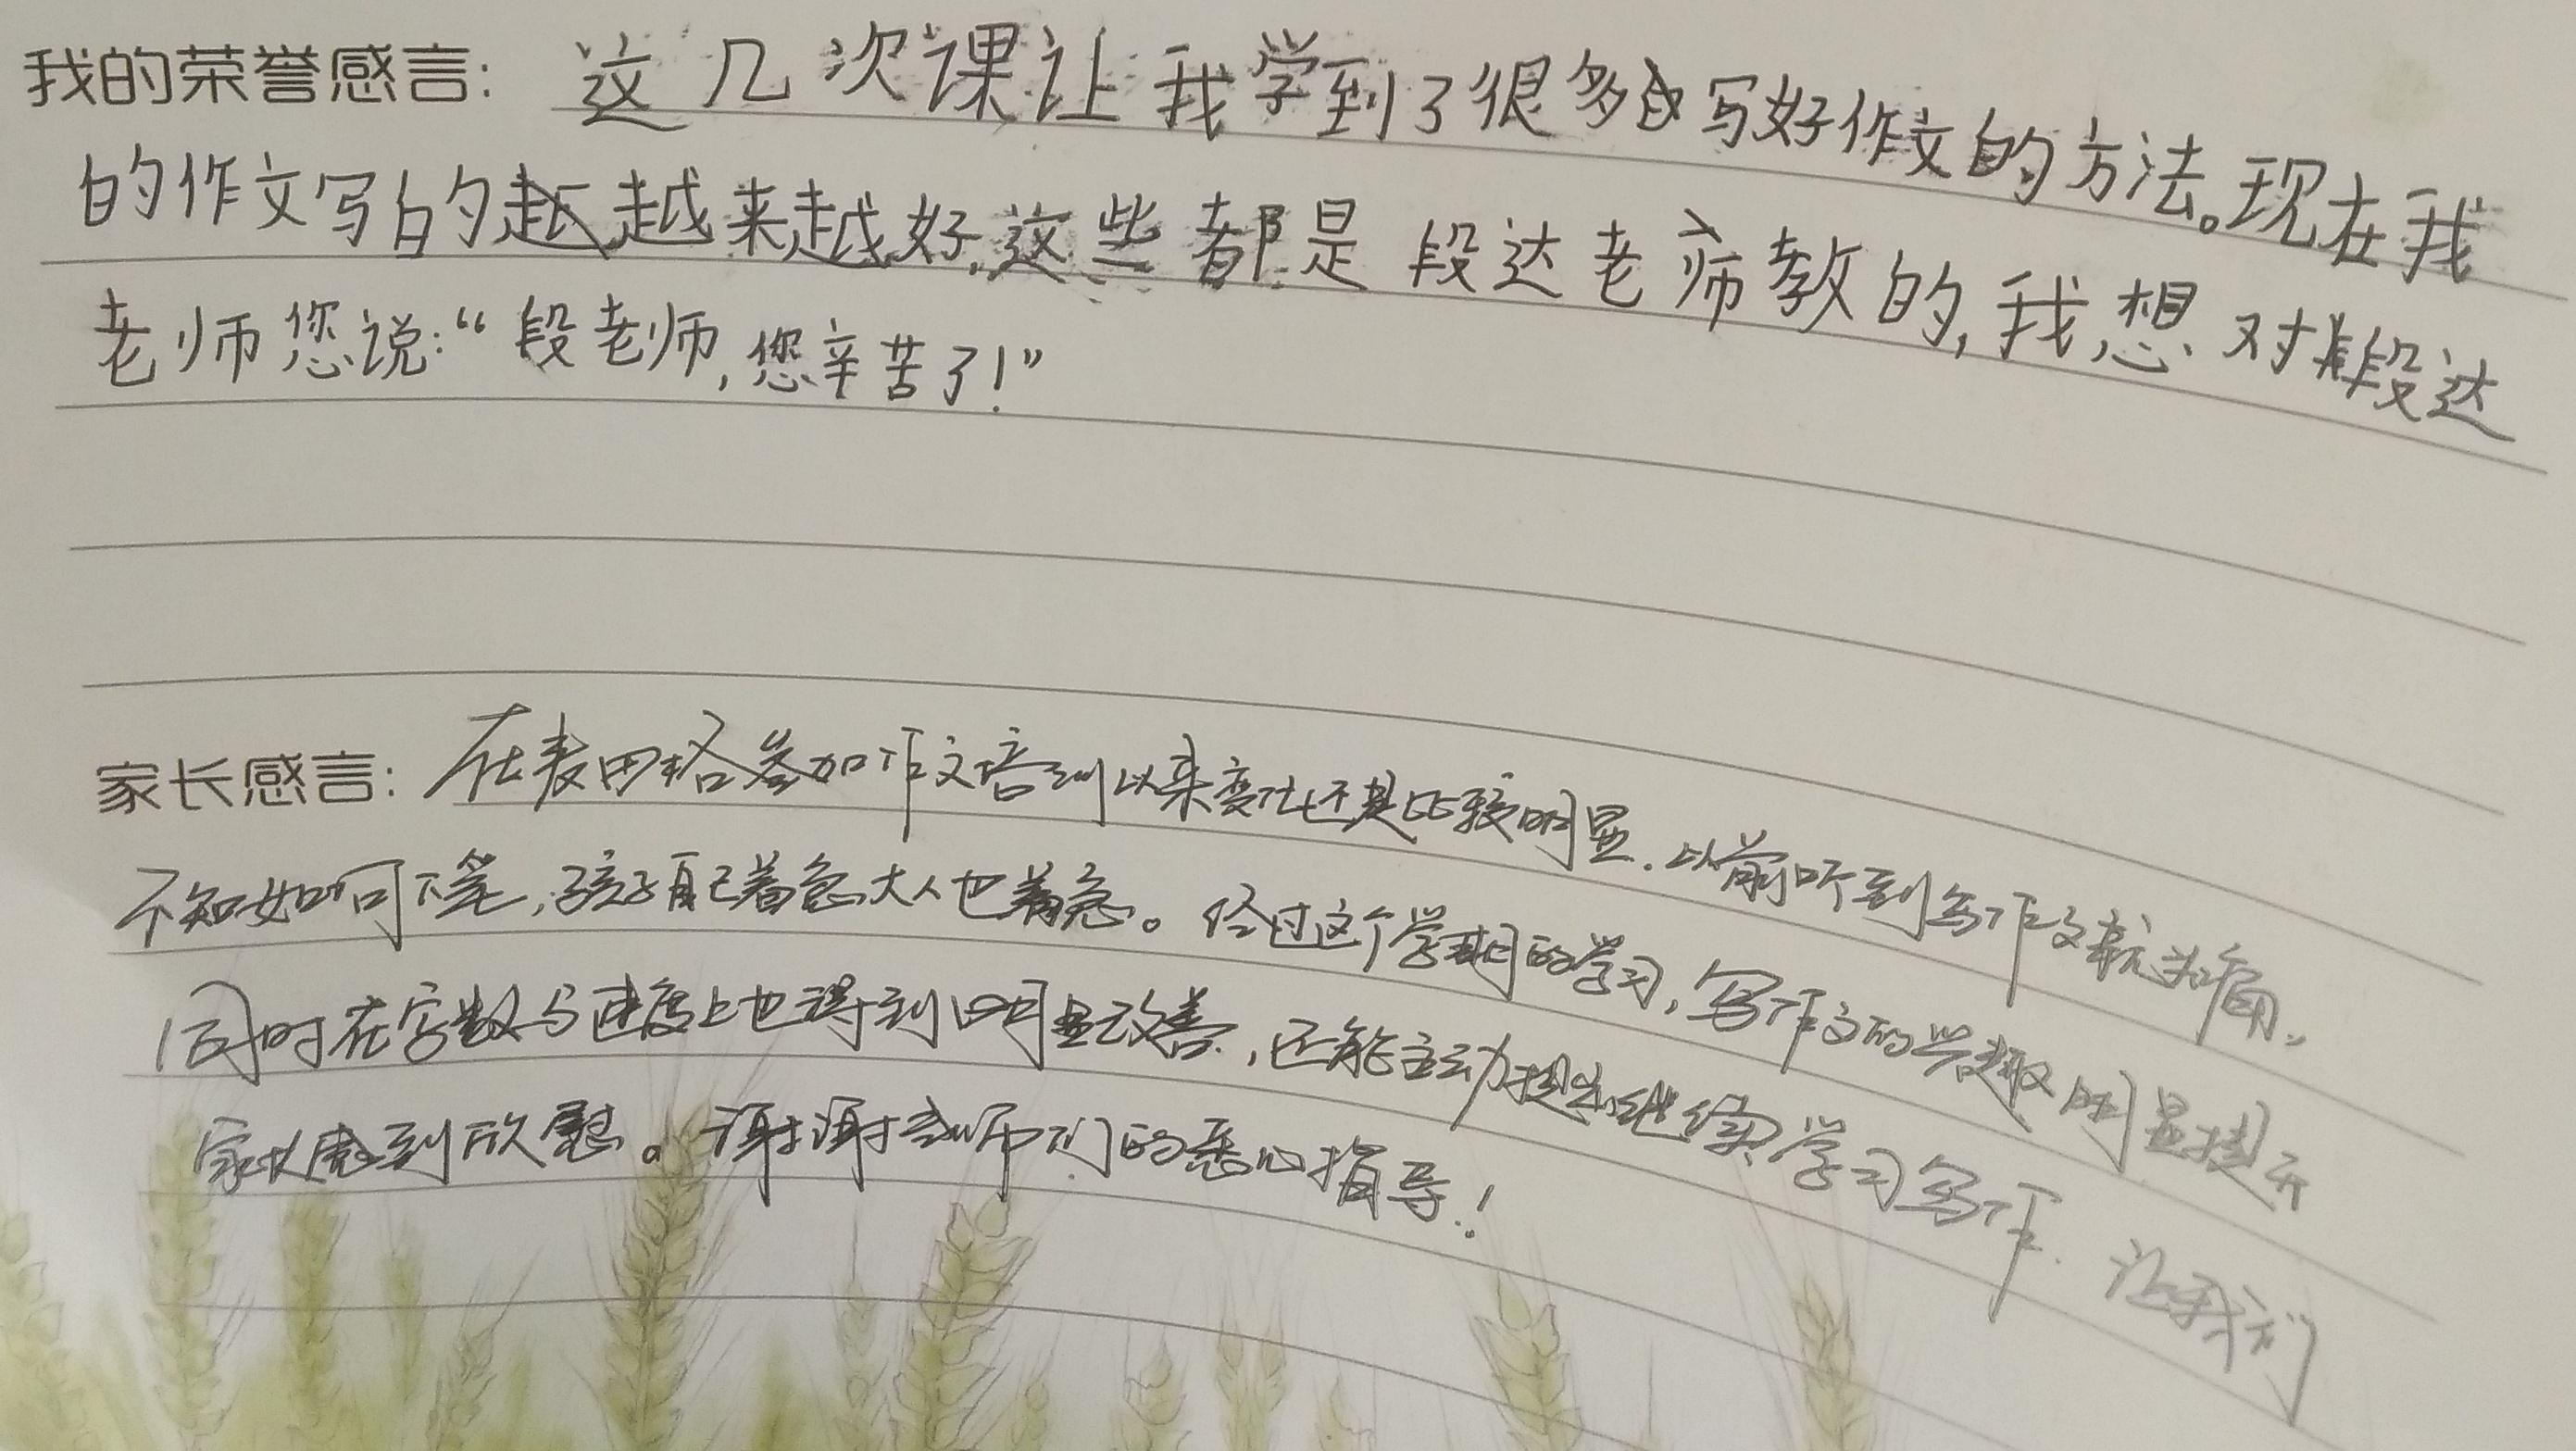 我的荣誉感言: 这几次课让我学到了很多写好作文的方法。现在我
的作文写的越来越好,这些都是段达老师教的,我想对段达
老师您说:“段老师,您辛苦了!”
家长感言: 在麦田格参加作文培训以来变化还是比较明显.以前听到写作文就头痛,
不知如何下笔,孩子自己着急大人也着急。经过这个学期的学习,写作文的兴趣明显提升
同时在字数与速度上也得到明显改善,还能主动提出继续学习写作.让我们
家长感到欣慰。谢谢老师们的悉心指导!